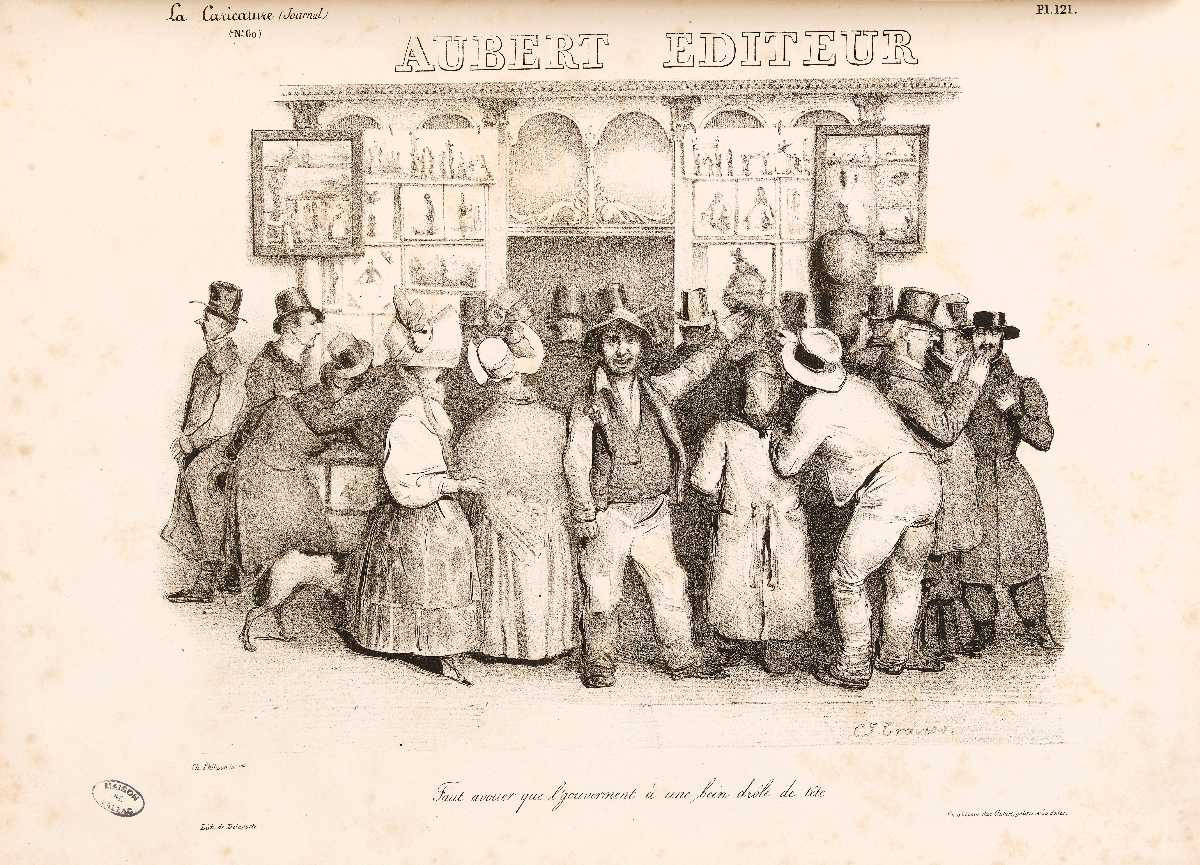 La Caricature (Journal)
(No. 60)
Pl. 121.
AUBERT EDITEUR
C.J. Travies.
Ch. Philipon
MAISON
DE
BALZAC
Faut avouer que l'gouvernent à une bein drôle de tête
Lith. de Delaporte